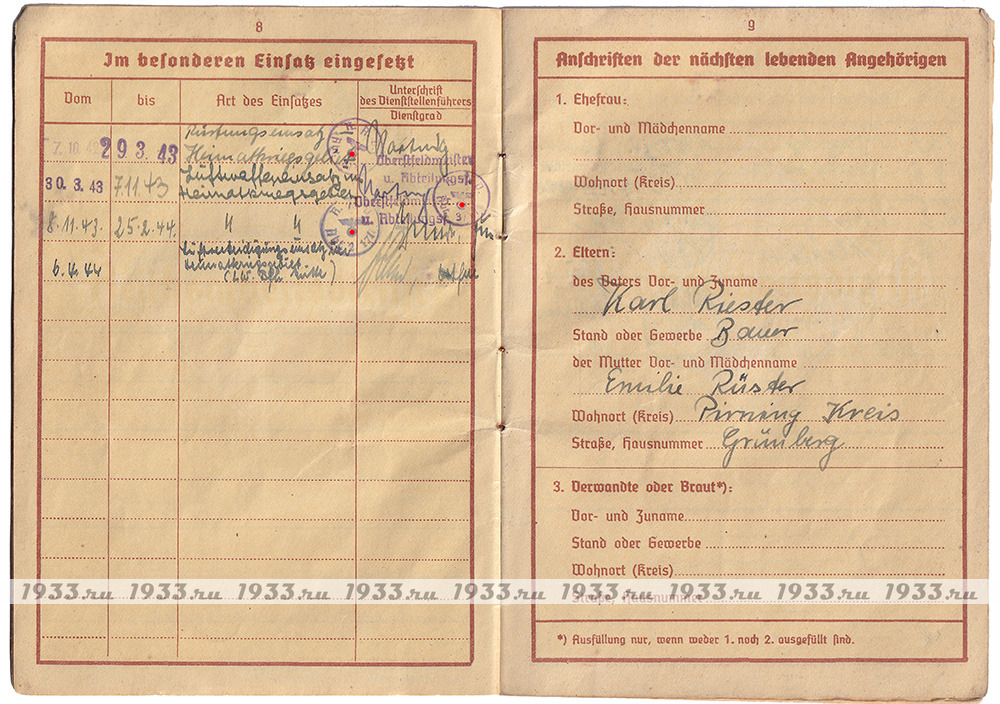 8
Im besonderen Einsatz eingesetzt
Vom
bis
Art des Einsatzes
Unterschrift
des Dienststellenführers
Dienstgrad
7. 10. 42
29. 3. 43
Rüstungseinsatz
Heimatkriegsgebiet
Hartung
Oberstfeldmeister
u. Abteilungsf.
30. 3. 43
7.11.43
Luftwaffeneinsatz im
Heimatkriegsgebiet
Hartung
Oberstfeldmeister
u. Abteilungsf.
8.11.43.
25.2.44.
" "
6.4.44
Luftverteidigungseinsatz im
Heimatkriegsgebiet
9
Anschriften der nächsten lebenden Angehörigen
1. Ehefrau:
Vor- und Mädchenname
Wohnort (Kreis)
Straße, Hausnummer
2. Eltern:
des Vaters Vor- und Zuname
Karl Riester
Stand oder Gewerbe Bauer
der Mutter Vor- und Mädchenname
Emilie Rüster
Wohnort (Kreis) Pirning Kreis
Straße, Hausnummer Grünberg
3. Verwandte oder Braut*):
Vor- und Zuname
Stand oder Gewerbe
Wohnort (Kreis)
1933.ru 1933.ru 1933.ru 1933.ru 1933.ru 1933.ru 1933.ru 1933.ru 1933.ru
Straße, Hausnummer
*) Ausfüllung nur, wenn weder 1. noch 2. ausgefüllt sind.